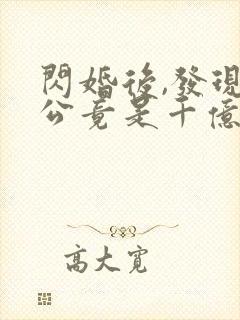 閃婚後,發現
公竟是千億
高大寬